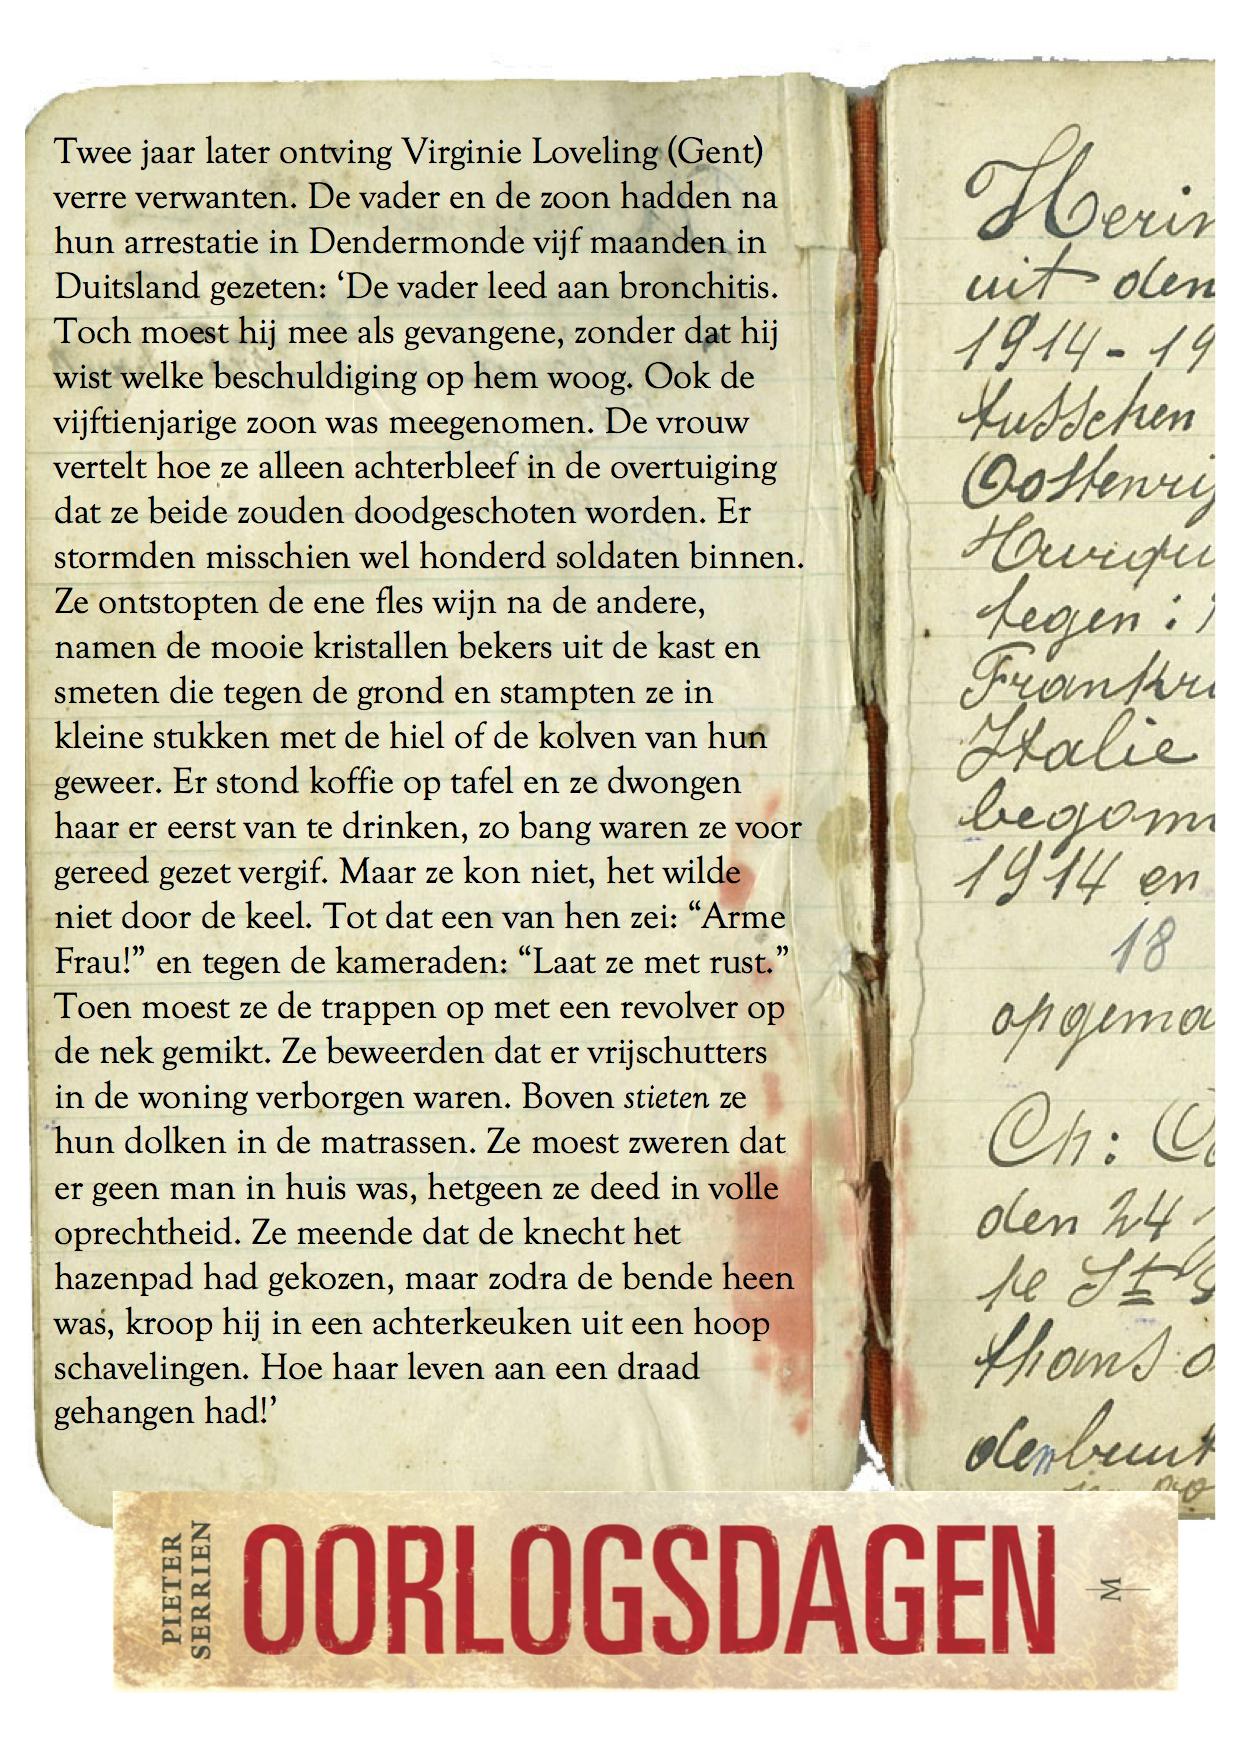 Twee jaar later ontving Virginie Loveling (Gent)
verre verwanten. De vader en de zoon hadden na
hun arrestatie in Dendermonde vijf maanden in
Duitsland gezeten: ‘De vader leed aan bronchitis.
Toch moest hij mee als gevangene, zonder dat hij
wist welke beschuldiging op hem woog. Ook de
vijftienjarige zoon was meegenomen. De vrouw
vertelt hoe ze alleen achterbleef in de overtuiging
dat ze beide zouden doodgeschoten worden. Er
stormden misschien wel honderd soldaten binnen.
Ze ontstopten de ene fles wijn na de andere,
namen de mooie kristallen bekers uit de kast en
smeten die tegen de grond en stampten ze in
kleine stukken met de hiel of de kolven van hun
geweer. Er stond koffie op tafel en ze dwongen
haar er eerst van te drinken, zo bang waren ze voor
gereed gezet vergif. Maar ze kon niet, het wilde
niet door de keel. Tot dat een van hen zei: “Arme
Frau!” en tegen de kameraden: “Laat ze met rust.”
Toen moest ze de trappen op met een revolver op
de nek gemikt. Ze beweerden dat er vrijschutters
in de woning verborgen waren. Boven stieten ze
hun dolken in de matrassen. Ze moest zweren dat
er geen man in huis was, hetgeen ze deed in volle
oprechtheid. Ze meende dat de knecht het
hazenpad had gekozen, maar zodra de bende heen
was, kroop hij in een achterkeuken uit een hoop
schavelingen. Hoe haar leven aan een draad
gehangen had!’
Herin
uit den
1914 - 19
tusschen
Oostenrij
tegen :
Frankr
Italie
begon
1914 en
18
opgema
Ch:
den 24
thans
PIETER
SERRIEN
OORLOGSDAGEN
M